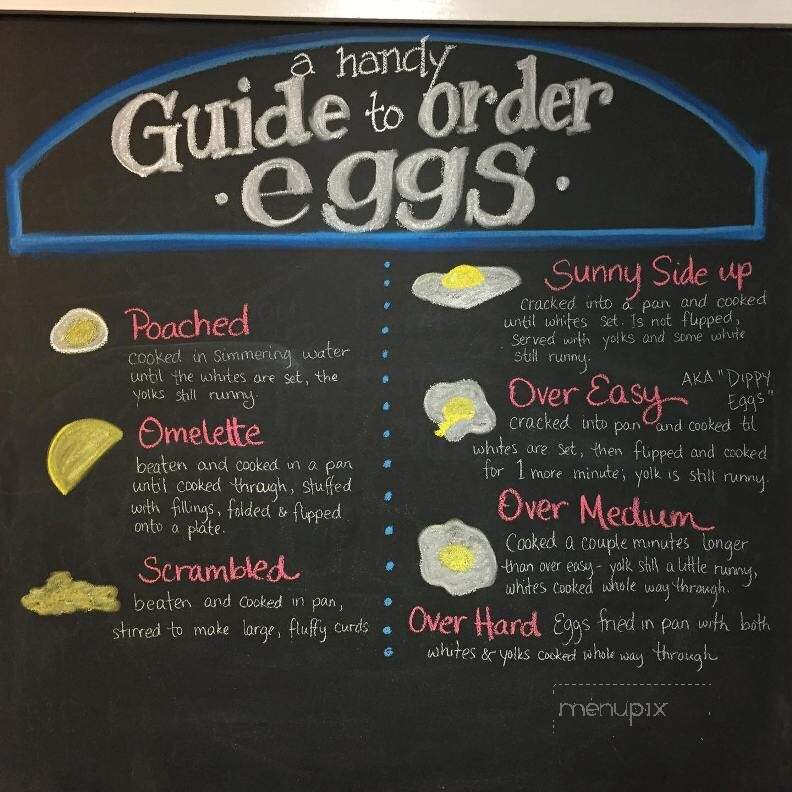 a handy
Guide to order
·eggs·
Poached
cooked in simmering water
until the whites are set, the
yolks still runny.
Omelette
beaten and cooked in a pan
until cooked through, stuffed
with fillings, folded & flipped
onto a plate.
Scrambled
beaten and cooked in pan,
stirred to make large, fluffy curds
Sunny Side up
cracked into a pan and cooked
until whites set. Is not flipped,
served with yolks and some white
still runny.
Over Easy AKA "Dippy
Eggs"
cracked into pan and cooked til
whites are set, then flipped and cooked
for 1 more minute; yolk is still runny.
Over Medium
Cooked a couple minutes longer
than over easy - yolk still a little runny,
whites cooked whole way through.
Over Hard Eggs fried in pan with both
whites & yolks cooked whole way through
menupix